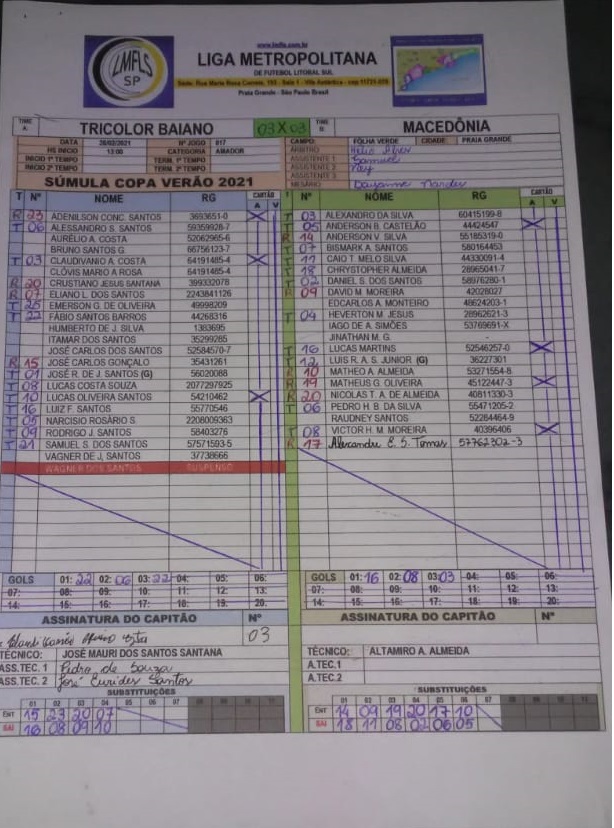 www.lmfls.com.br
LMFLS
SP
LIGA METROPOLITANA
DE FUTEBOL LITORAL SUL
Praia Grande - São Paulo Brasil
TIME A: TRICOLOR BAIANO 03 X 03 TIME B: MACEDÔNIA
DATA 28/03/2021 Nº JOGO 017 CAMPO: FOLHA VERDE CIDADE PRAIA GRANDE
HS INICIO 13:00 CATEGORIA AMADOR ARBITRO
INICIO 1º TEMPO TERM. 1º TEMPO ASSISTENTE 1 Samuel
INICIO 2º TEMPO TERM. 2º TEMPO ASSISTENTE 2 Ray
ASSISTENTE 3
SÚMULA COPA VERÃO 2021 MESARIO Dayanne
T Nº NOME RG CARTÃO A V
R 23 ADENILSON CONC. SANTOS 3693651-0 X
T 06 ALESSANDRO S. SANTOS 59359928-7
AURÉLIO A. COSTA 52062965-6
BRUNO SANTOS G. 66756123-7
T 03 CLAUDIVANIO A. COSTA 64191485-4 X
CLÓVIS MARIO A ROSA 64191485-4
R 20 CRUSTIANO JESUS SANTANA 399332078
R 07 ELIANO L. DOS SANTOS 2243841126
T 25 EMERSON G. DE OLIVEIRA 49998209
T 22 FÁBIO SANTOS BARROS 44268316
HUMBERTO DE J. SILVA 1383695
ITAMAR DOS SANTOS 35299285
JOSÉ CARLOS DOS SANTOS 52584570-7
R 15 JOSÉ CARLOS GONÇALO 35431261
T 01 JOSÉ R. DE J. SANTOS (G) 56020088
T 08 LUCAS COSTA SOUZA 2077297925
T 10 LUCAS OLIVEIRA SANTOS 54210462 X
T 16 LUIZ F. SANTOS 55770546
T 05 NARCISIO ROSÁRIO S. 2208009363
T 09 RODRIGO J. SANTOS 58403276
T 21 SAMUEL S. DOS SANTOS 57571593-5
VAGNER DE J. SANTOS 37738666
WAGNER DOS SANTOS SUSPENSO
GOLS 01: 22 02: 06 03: 22 04: 05: 06:
07: 08: 09: 10: 11: 12: 13:
14: 15: 16: 17: 18: 19: 20:
ASSINATURA DO CAPITÃO Nº
03
TÉCNICO: JOSÉ MAURI DOS SANTOS SANTANA
ASS.TEC. 1 Pedro de Souza
ASS.TEC. 2 José Eurides Santos
SUBSTITUIÇÕES
01 02 03 04 05 06 07 08 09 10 11 12
ENT 15 23 20 07
SAI 16 08 09 10
T Nº NOME RG CARTÃO A V
T 03 ALEXANDRO DA SILVA 60415199-8
T 05 ANDERSON B. CASTELÃO 44424547 X
R 14 ANDERSON V. SILVA 55185319-0
T 07 BISMARK A. SANTOS 580164453
T 11 CAIO T. MELO SILVA 44330091-4
T 18 CHRYSTOPHER ALMEIDA 28965041-7
T 02 DANIEL S. DOS SANTOS 58976280-1
R 09 DAVID M. MOREIRA 42028027
EDCARLOS A. MONTEIRO 48624203-1
T 04 HEVERTON M. JESUS 28962621-3
IAGO DE A. SIMÕES 53769691-X
JINATHAN M. G. -
T 16 LUCAS MARTINS 52546257-0 X
T 12 LUIS R. A. S. JUNIOR (G) 36227301
R 10 MATHEO A. ALMEIDA 53271554-8
R 19 MATHEUS G. OLIVEIRA 45122447-3 X
R 20 NICOLAS T. A. DE ALMEIDA 40811330-3
T 06 PEDRO H. B. DA SILVA 55471205-2
RAUDNEY SANTOS 52264464-9
T 08 VICTOR H. M. MOREIRA 40396406 X
R 17 Alexandre E. S. Tomas 57762302-3
GOLS 01: 16 02: 08 03: 03 04: 05: 06:
07: 08: 09: 10: 11: 12: 13:
14: 15: 16: 17: 18: 19: 20:
ASSINATURA DO CAPITÃO Nº
TÉCNICO: ALTAMIRO A. ALMEIDA
A.TEC.1
A.TEC.2
SUBSTITUIÇÕES
01 02 03 04 05 06 07 08 09 10 11 12
ENT 14 09 19 20 17 10
SAI 18 11 08 02 06 05